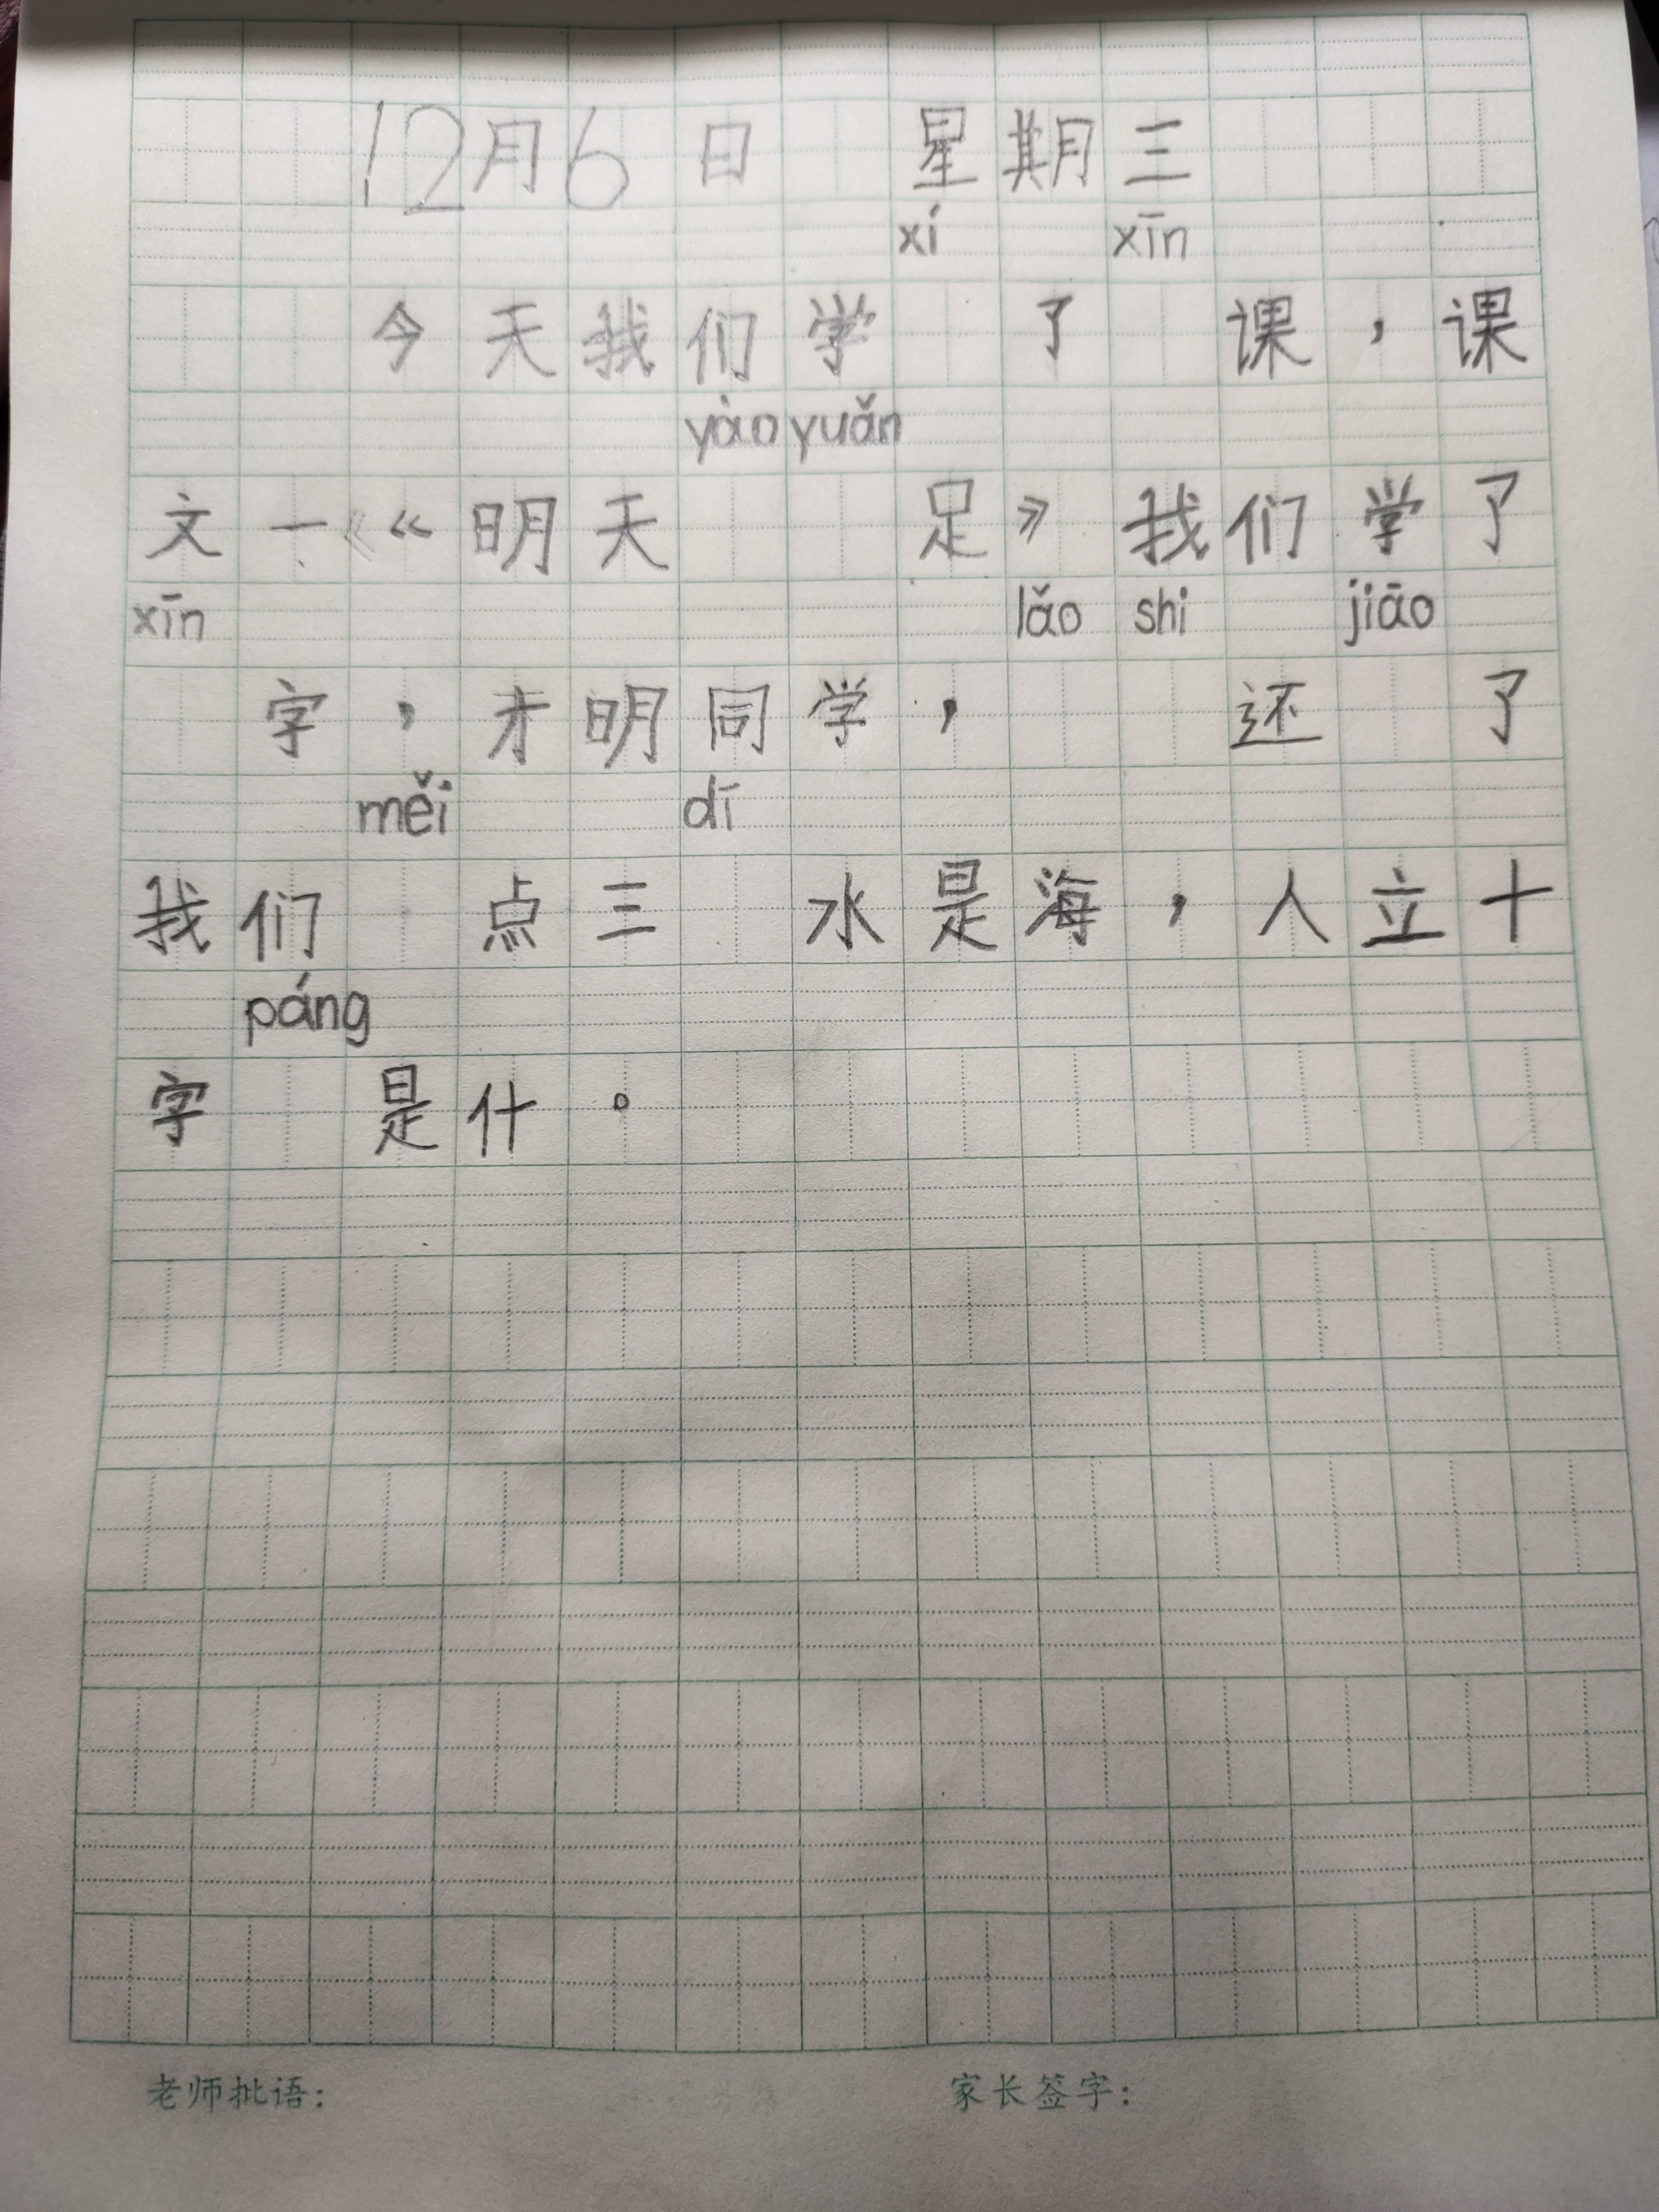 12月6日 星期三
xí xīn
今天我们学 了 课，课
yào yuǎn
文一《明天 足》我们学了
xīn lǎo shi jiāo
字，才明同学， 还 了
měi dī
我们 点三 水是海，人立十
páng
字 是什。
老师批语： 家长签字：